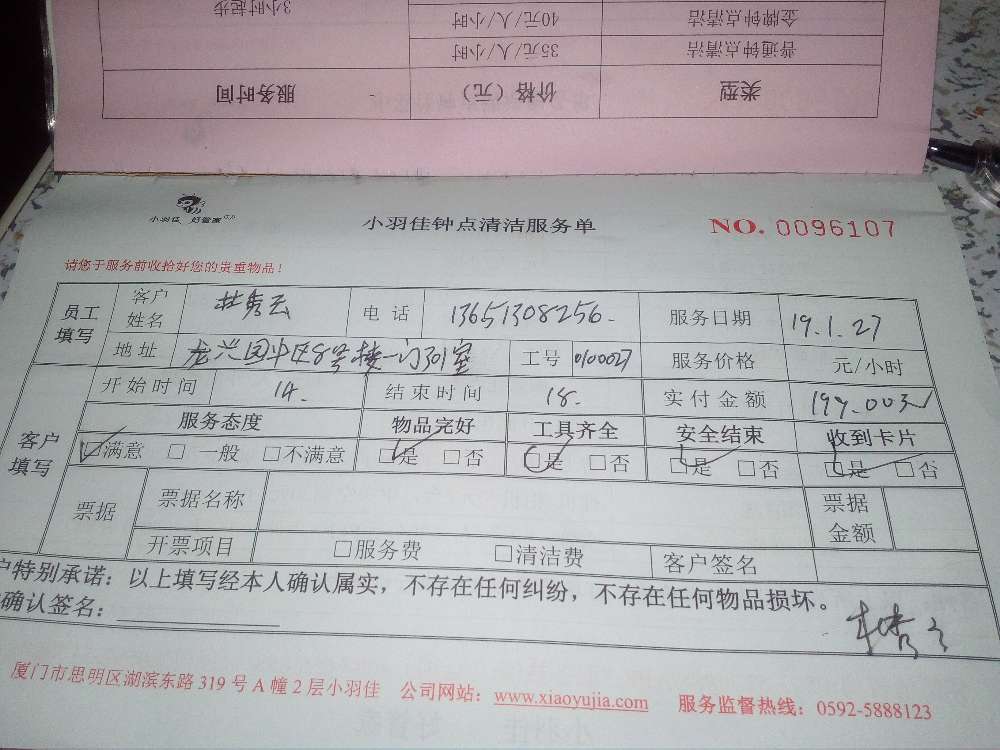 3小时起步
40元/人/小时
金牌钟点清洁
35元/人/小时
普通钟点清洁
服务时间
价格（元）
类型
小羽佳 好管家
小羽佳钟点清洁服务单
NO. 0096107
请您于服务前收拾好您的贵重物品！
员工填写
客户姓名
杜秀云
电话
13651308256
服务日期
19.1.27
地址
龙兴园中区8号楼一门301室
工号
0100027
服务价格
元/小时
客户填写
开始时间
14.
结束时间
18.
实付金额
服务态度
物品完好
工具齐全
安全结束
收到卡片
□满意 □一般 □不满意
□是 □否
□是 □否
□是 □否
□是 □否
票据
票据名称
票据金额
开票项目
□服务费 □清洁费
客户签名
户特别承诺：以上填写经本人确认属实，不存在任何纠纷，不存在任何物品损坏。
确认签名：
杜秀云
厦门市思明区湖滨东路 319 号 A 幢 2 层小羽佳 公司网站：www.xiaoyujia.com 服务监督热线：0592-5888123